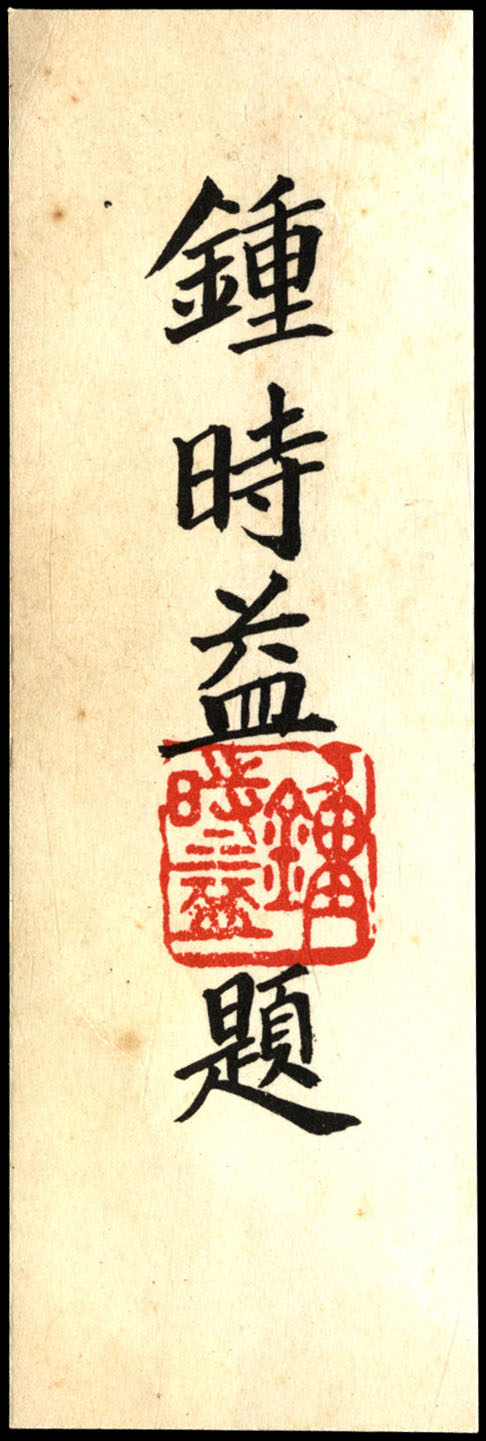 鍾時益
鍾時益
題